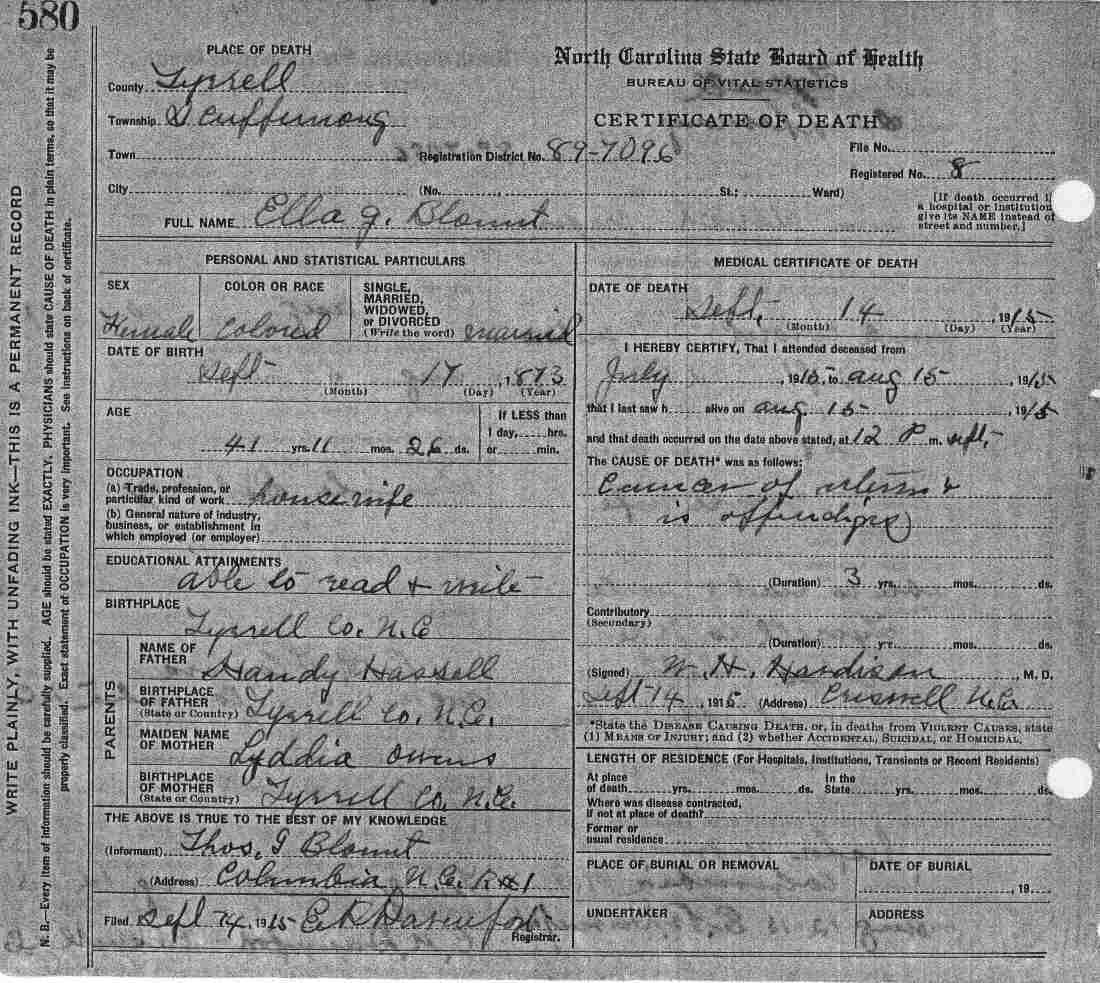 580
WRITE PLAINLY, WITH UNFADING INK—THIS IS A PERMANENT RECORD
N. B.—Every item of information should be carefully supplied. AGE should be stated EXACTLY. PHYSICIANS should state CAUSE OF DEATH in plain terms, so that it may be
properly classified. Exact statement of OCCUPATION is very important. See instructions on back of certificate.
North Carolina State Board of Health
BUREAU OF VITAL STATISTICS
CERTIFICATE OF DEATH
PLACE OF DEATH
County Tyrrell
Township Scuffernong
Town Registration District No. 89-7096
File No.
Registered No. 8
City (No. St.; Ward)
[If death occurred i
a hospital or institution
give its NAME instead of
street and number.]
FULL NAME Ella J. Blount
PERSONAL AND STATISTICAL PARTICULARS
SEX
Female
COLOR OR RACE
Colored
SINGLE,
MARRIED,
WIDOWED,
or DIVORCED
(Write the word) married
DATE OF BIRTH
Sept 17, 1873
(Month) (Day) (Year)
AGE
41 yrs. 11 mos. 26 ds.
If LESS than
1 day, hrs.
or min.
OCCUPATION
(a) Trade, profession, or
particular kind of work house wife
(b) General nature of industry,
business, or establishment in
which employed (or employer)
EDUCATIONAL ATTAINMENTS
able to read & write
BIRTHPLACE
Tyrrell Co. N.C
PARENTS
NAME OF
FATHER
Handy Hassell
BIRTHPLACE
OF FATHER
(State or Country) Tyrrell Co. N.C.
MAIDEN NAME
OF MOTHER
Lyddia Owens
BIRTHPLACE
OF MOTHER
(State or Country) Tyrrell Co. N.C.
THE ABOVE IS TRUE TO THE BEST OF MY KNOWLEDGE
(Informant) Thos. J Blount
(Address) Columbia N.C. R#1
Filed Sept 1915 Registrar.
MEDICAL CERTIFICATE OF DEATH
DATE OF DEATH
Sept, 14, 1915
(Month) (Day) (Year)
I HEREBY CERTIFY, That I attended deceased from
July, 1915 to aug 15, 1915
that I last saw h alive on aug 15, 1915
and that death occurred on the date above stated, at 12 P m. sept,
The CAUSE OF DEATH* was as follows:
Cancer of uterus &
(Duration) 3 yrs. mos. ds.
Contributory
(Secondary)
(Duration) yrs. mos. ds.
(Signed) W. H. Hardison, M. D.
Sept 14, 1915 (Address) Creswell N.C.
*State the DISEASE CAUSING DEATH, or, in deaths from VIOLENT CAUSES, state
(1) MEANS OF INJURY; and (2) whether ACCIDENTAL, SUICIDAL, or HOMICIDAL.
LENGTH OF RESIDENCE (For Hospitals, Institutions, Transients or Recent Residents)
At place
of death yrs. mos. ds.
In the
State yrs. mos. ds.
Where was disease contracted,
if not at place of death?
Former or
usual residence
PLACE OF BURIAL OR REMOVAL
DATE OF BURIAL
, 19
UNDERTAKER
ADDRESS